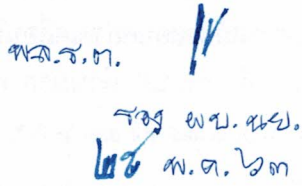 พล.ร.ต.
รอง ผบ.นย.
๒๕ พ.ค.๖๓